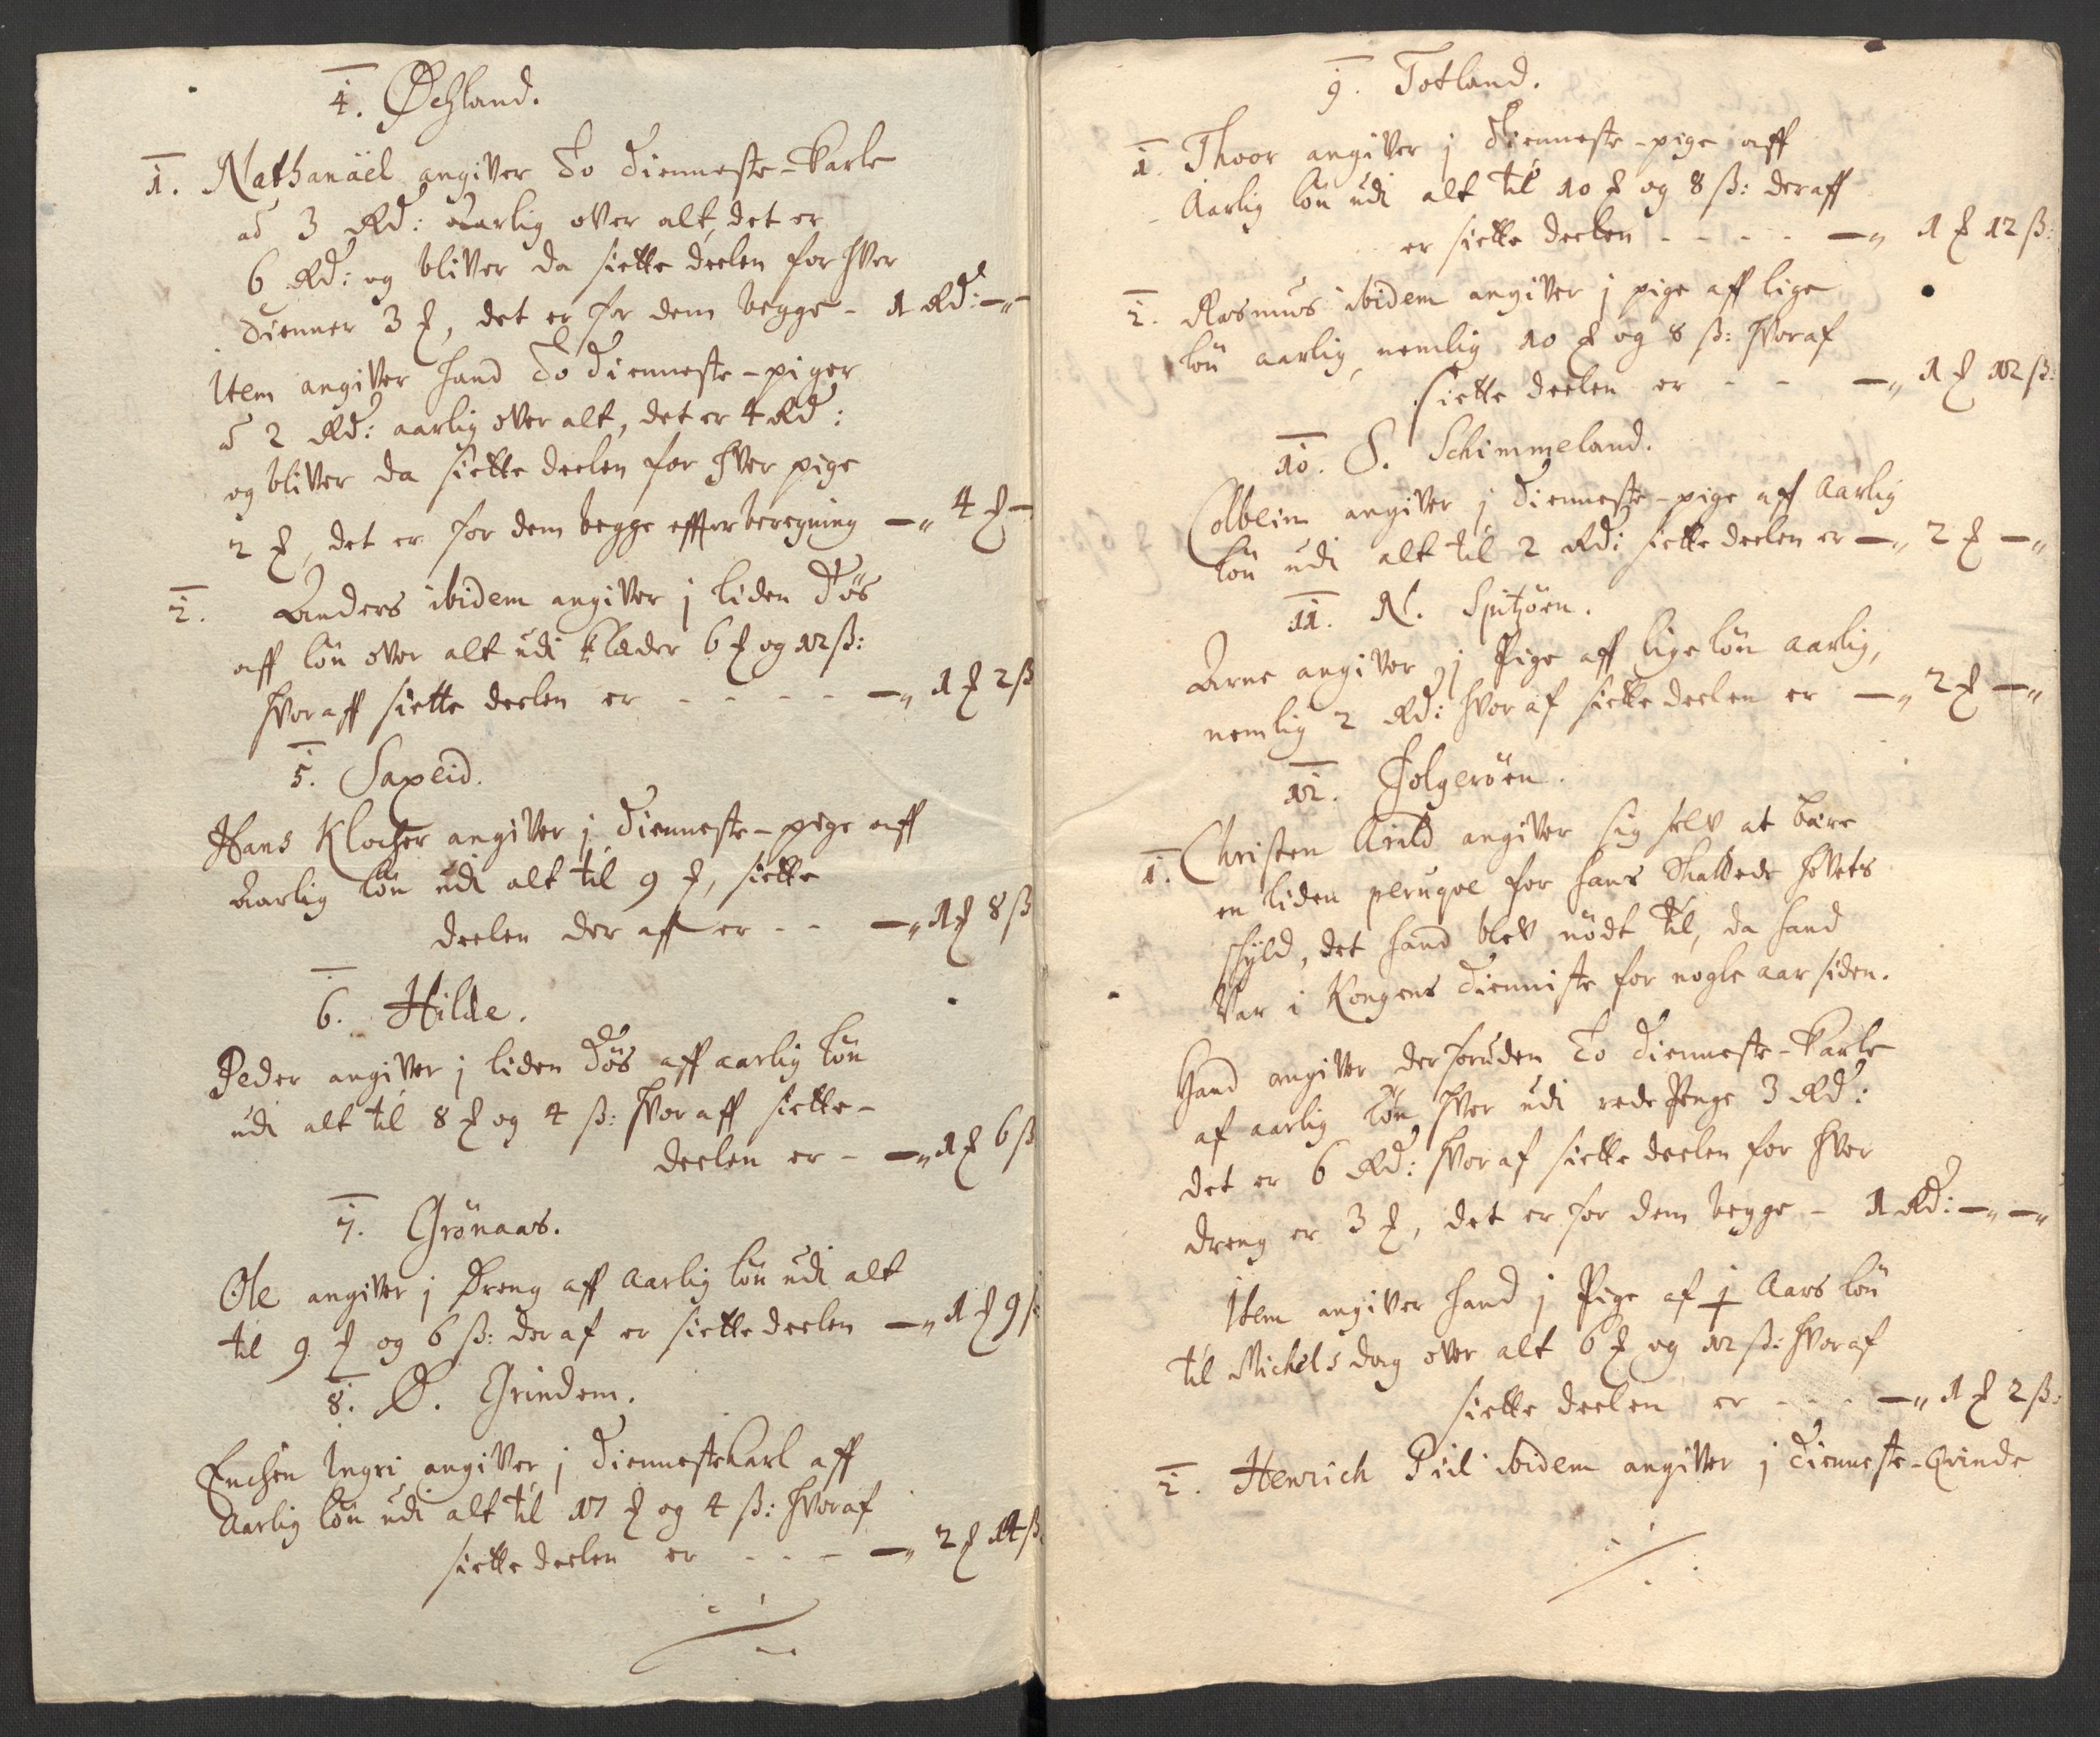 4. Øchland.
1. Nathanäel angiver To Tienneste-Karle
ad 3 Rd: aarlig over alt, det er
6 Rd: og bliver da siette deelen for hver
Tienner 3 ℳ, det er for dem begge - 1 Rd: —„—
Item angiver hand To Tienneste-piger
ad 2 Rd: aarlig over alt, det er 4 Rd:
og bliver da siette deelen for hver pige
2 ℳ, det er for dem begge effter beregning —„ 4 ℳ —
2. Anders ibidem angiver j liden Tøs
aff løn over alt udi Klæder 6 ℳ og 12 ß:
hvoraff siette deelen er - - - - —„ 1 ℳ 2 ß
5. Saxeid.
Hans Klocher angiver j Tienneste-pige aff
Aarlig løn udi alt til 9 ℳ, siette
deelen der aff er - - —„ 1 ℳ 8 ß
6. Hilde.
Peder angiver j liden Tøs aff aarlig løn
udi alt til 8 ℳ og 4 ß: hvoraff siette-
deelen er - —„ 1 ℳ 6 ß
7. Grönaas.
Ole angiver j Dreng aff Aarlig løn udi alt
til 9 ℳ og 6 ß: der af er siette deelen —„ 1 ℳ 9 ß:
8. Ø. Grindem.
Enchen Ingri angiver j Tienneste Karl aff
Aarlig løn udi alt til 17 ℳ og 4 ß: hvoraf
siette deelen er - - - —„ 2 ℳ 14 ß:
9. Totland.
1. Thoor angiver j Tienneste-pige aff
Aarlig løn udi alt til 10 ℳ og 8 ß: deraff
er siette deelen - - - - —„ 1 ℳ 12 ß:
2. Rasmus ibidem angiver j pige aff lige
løn aarlig, nemlig 10 ℳ og 8 ß: hvoraf
siette deelen er - - —„ 1 ℳ 12 ß:
10. S. Schimmeland.
Colbein angiver j Tienneste-pige aff Aarlig
løn udi alt til 2 Rd: siette deelen er —„ 2 ℳ —„
11. N. Spitzöen.
Arne angiver j Pige aff lige løn aarlig,
nemlig 2 Rd: hvoraf siette deelen er —„ 2 ℳ —„
12. Folgeröen.
1. Christen Arild angiver sig selv at bære
en liden peruqve for hans Skallede hovets
skyld, det hand blev nödt til, da hand
var i Kongens Tienniste for nogle aar siden.
Hand angiver der foruden To Tienneste-Karle
af aarlig løn hver udi rede Penge 3 Rd:
det er 6 Rd: hvoraf siette deelen for hver
dreng er 3 ℳ, det er for dem begge - 1 Rd: —„—„
Item angiver hand j Pige af j Aars løn
til Michels dag over alt 6 ℳ og 12 ß: hvoraf
siette deelen er - - - —„ 1 ℳ 2 ß:
2. Henrich Piil ibidem angiver j Tienneste-Qvinde